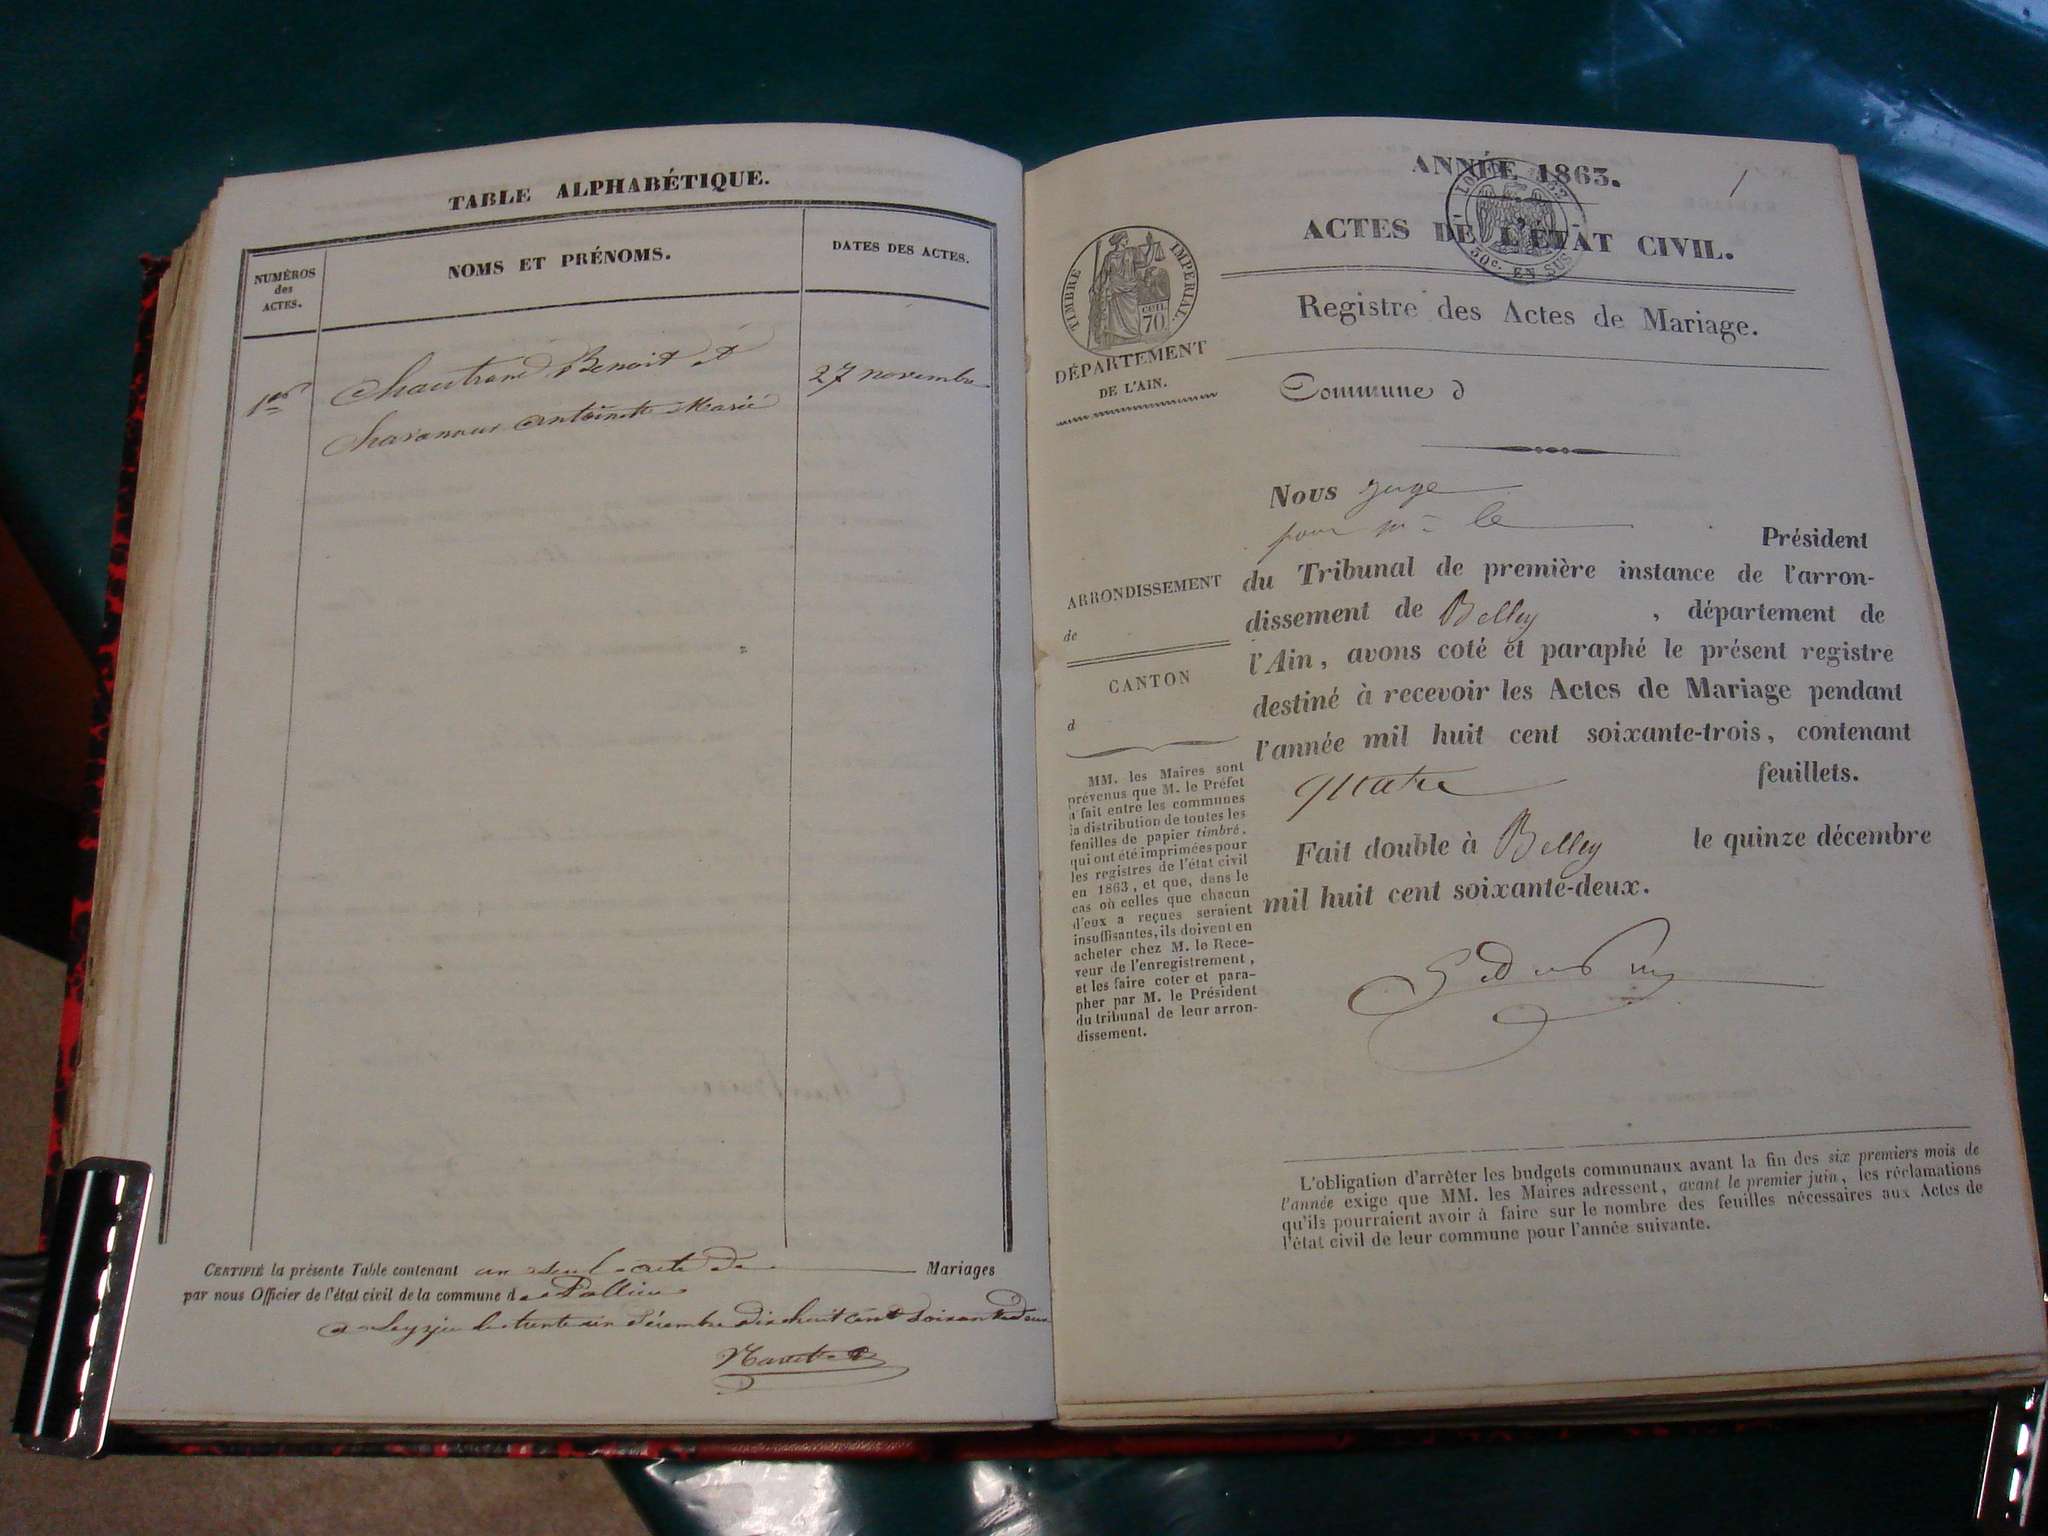 TABLE ALPHABÉTIQUE.
NUMÉROS
des
ACTES.
NOMS ET PRÉNOMS.
DATES DES ACTES.
1er
Chautrand Benoit et
27 novembre
antoinette Marie
CERTIFIÉ la présente Table contenant un seul acte de Mariages
par nous Officier de l'état civil de la commune de Pollieu
a le trente un Décembre dix huit cent soixante deux
ANNÉE 1863.
1
ACTES DE L'ÉTAT CIVIL.
30c. EN SUS
TIMBRE IMPERIAL.
CEN.
70
Registre des Actes de Mariage.
DÉPARTEMENT
DE L'AIN.
Commune d
Nous juge
pour mr le
Président
du Tribunal de première instance de l'arron-
dissement de Belley , département de
l'Ain, avons coté et paraphé le présent registre
destiné à recevoir les Actes de Mariage pendant
l'année mil huit cent soixante-trois, contenant
quatre feuillets.
Fait double à Belley le quinze décembre
mil huit cent soixante-deux.
ARRONDISSEMENT
de
CANTON
d
MM. les Maires sont
prévenus que M. le Préfet
a fait entre les communes
la distribution de toutes les
feuilles de papier timbré,
qui ont été imprimées pour
les registres de l'état civil
en 1863, et que, dans le
cas où celles que chacun
d'eux a reçues seraient
insuffisantes, ils doivent en
acheter chez M. le Rece-
veur de l'enregistrement,
et les faire coter et para-
pher par M. le Président
du tribunal de leur arron-
dissement.
L'obligation d'arrêter les budgets communaux avant la fin des six premiers mois de
l'année exige que MM. les Maires adressent, avant le premier juin, les réclamations
qu'ils pourraient avoir à faire sur le nombre des feuilles nécessaires aux Actes de
l'état civil de leur commune pour l'année suivante.